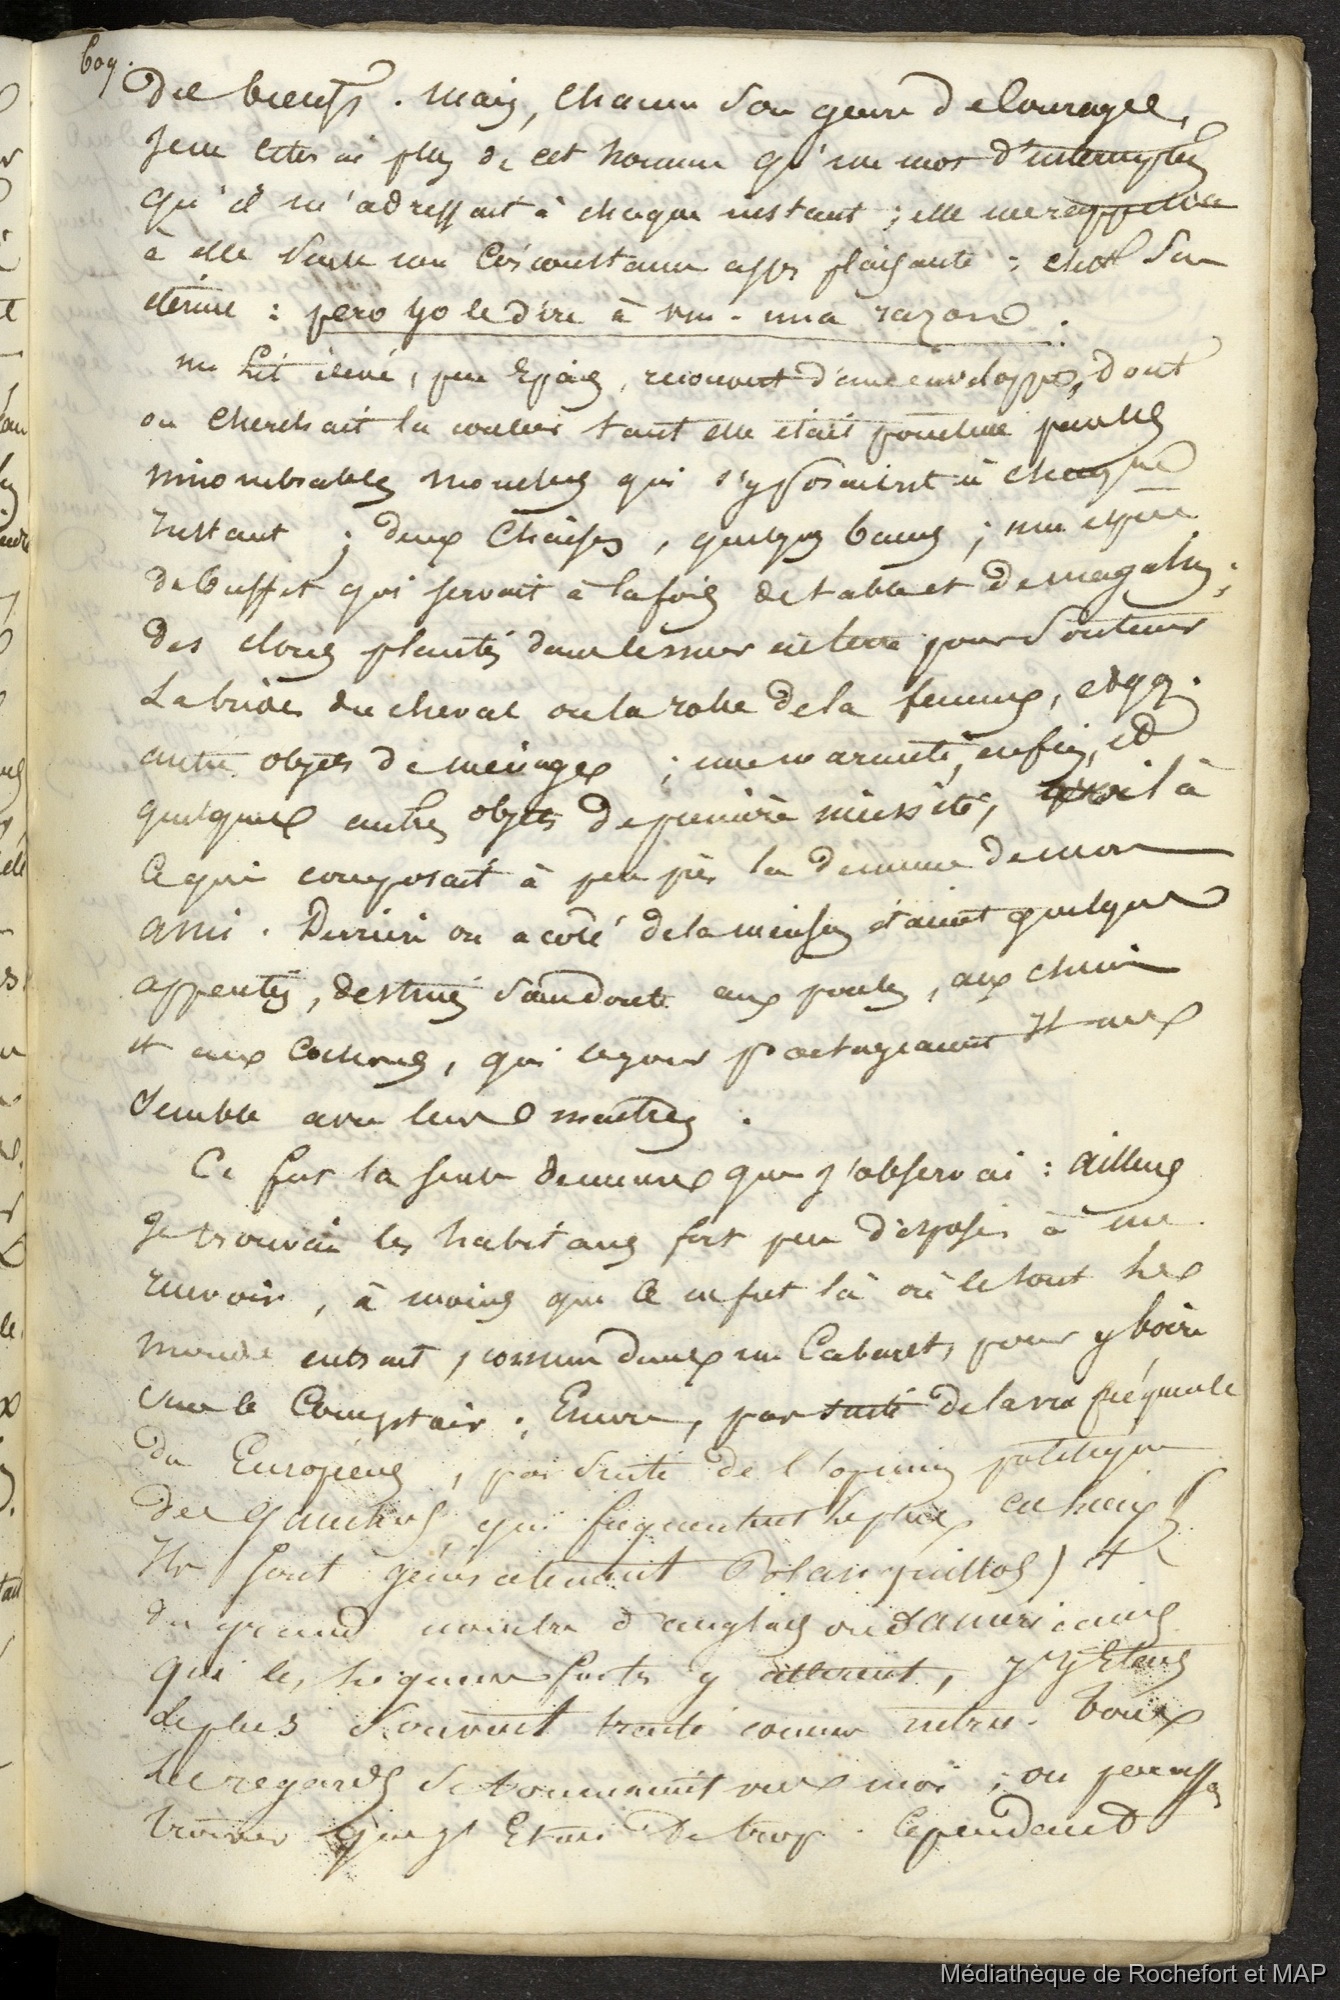 609.
des bœufs. Mais, chacun son genre de courage.
Je ne citerai plus de cet homme qu'un mot
qu'il m'adressait à chaque instant ; elle me rappelera
à elle seule une circonstance assés plaisante : c'est son
éternel : pero yo le dire à vm. una razon.
un Lit élevé, peu Epais, recouvert d'une enveloppe, dont
on cherchait la couleur tant elle était par les
innombrables mouches qui s'y posaient à chaque
Instant ; deux Chaises, quelques bancs ; une espèce
de buffet qui servait à la fois de table et de magasin ;
des clous plantés dans les murs en terre pour soutenir
La bride du cheval ou la robe de la femme, et qq.
autres objets de ménage ; une marmite, enfin, et
quelques autres objets de première nécessité, voilà
ce qui composait à peu près la demeure de mon
ami. Derrière ou a coté de la maison étaient quelques
appentis, destinés sans doute aux poules, aux chiens
et aux cochons, qui logeaient
ensemble avec leurs maitres.
Ce fut la seule demeure que j'observai : ailleurs
Je trouvai les habitans fort peu disposés à me
recevoir, à moins que ce ne fut là où le tout le
monde entrait, comme dans un Cabaret, pour y boire
sur le Comptoir. Encore, par suite de la vue fréquente
des Européens, par suite de l'opinion politique
des gauchos, qui fréquentent le plus ces lieux (
Ils sont généralement ) et
du grand nombre d'anglais ou d'américains
qui les fréquentent y attirent, j'y Etais
le plus souvent traité comme intrus. Tous
les regards se tournaient vers moi ; on paraissa
trouver que j'Etais de trop. Cependant
Médiathèque de Rochefort et MAP